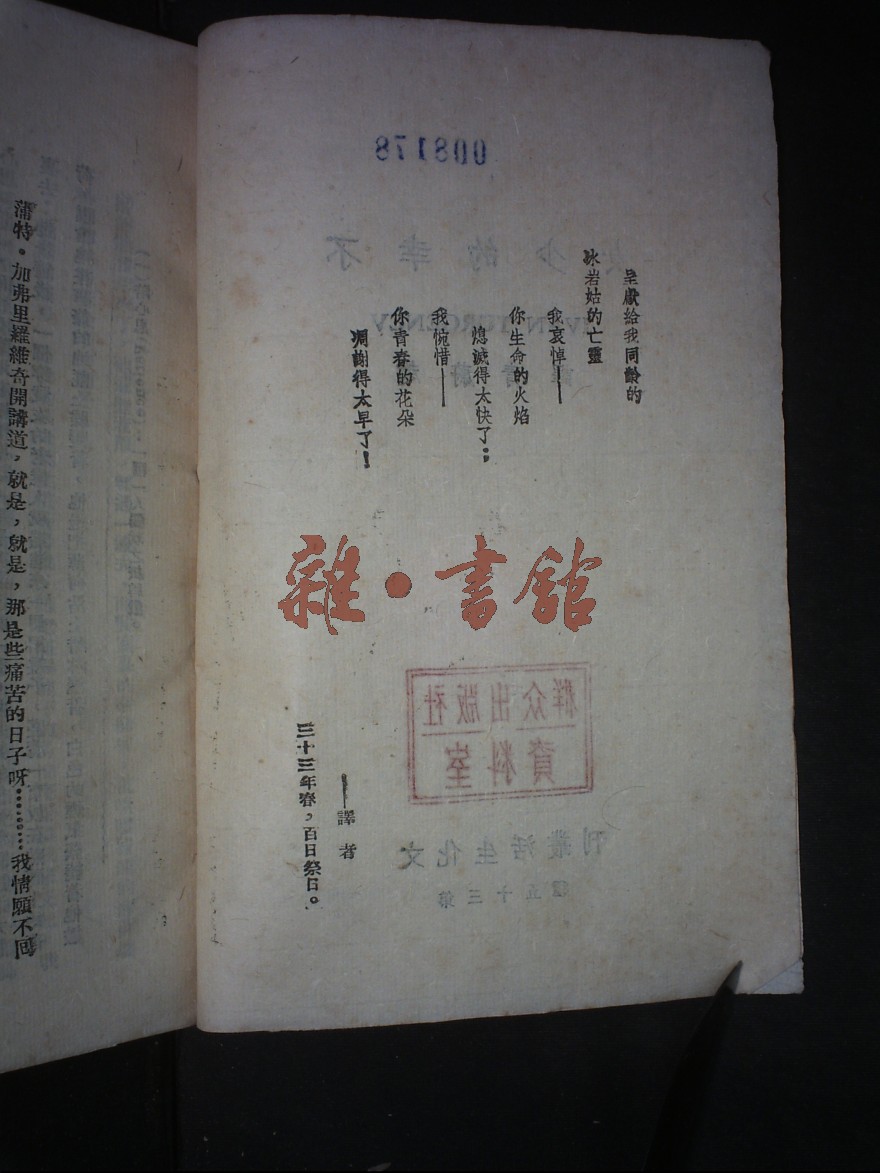 呈獻給我同齡的
冰岩姑的亡靈
我哀悼——
你生命的火焰
熄滅得太快了；
我惋惜——
你青春的花朵
凋謝得太早了！
——譯者
三十三年春，百日祭日。
雜·書館
008178
不幸的少
IVAN TURGENEV
群众出版社
資料室
文化生活叢刊
第三十五種
蒲特·加弗里羅維奇開講道，就是，就是，那是些痛苦的日子呀……我情願不回